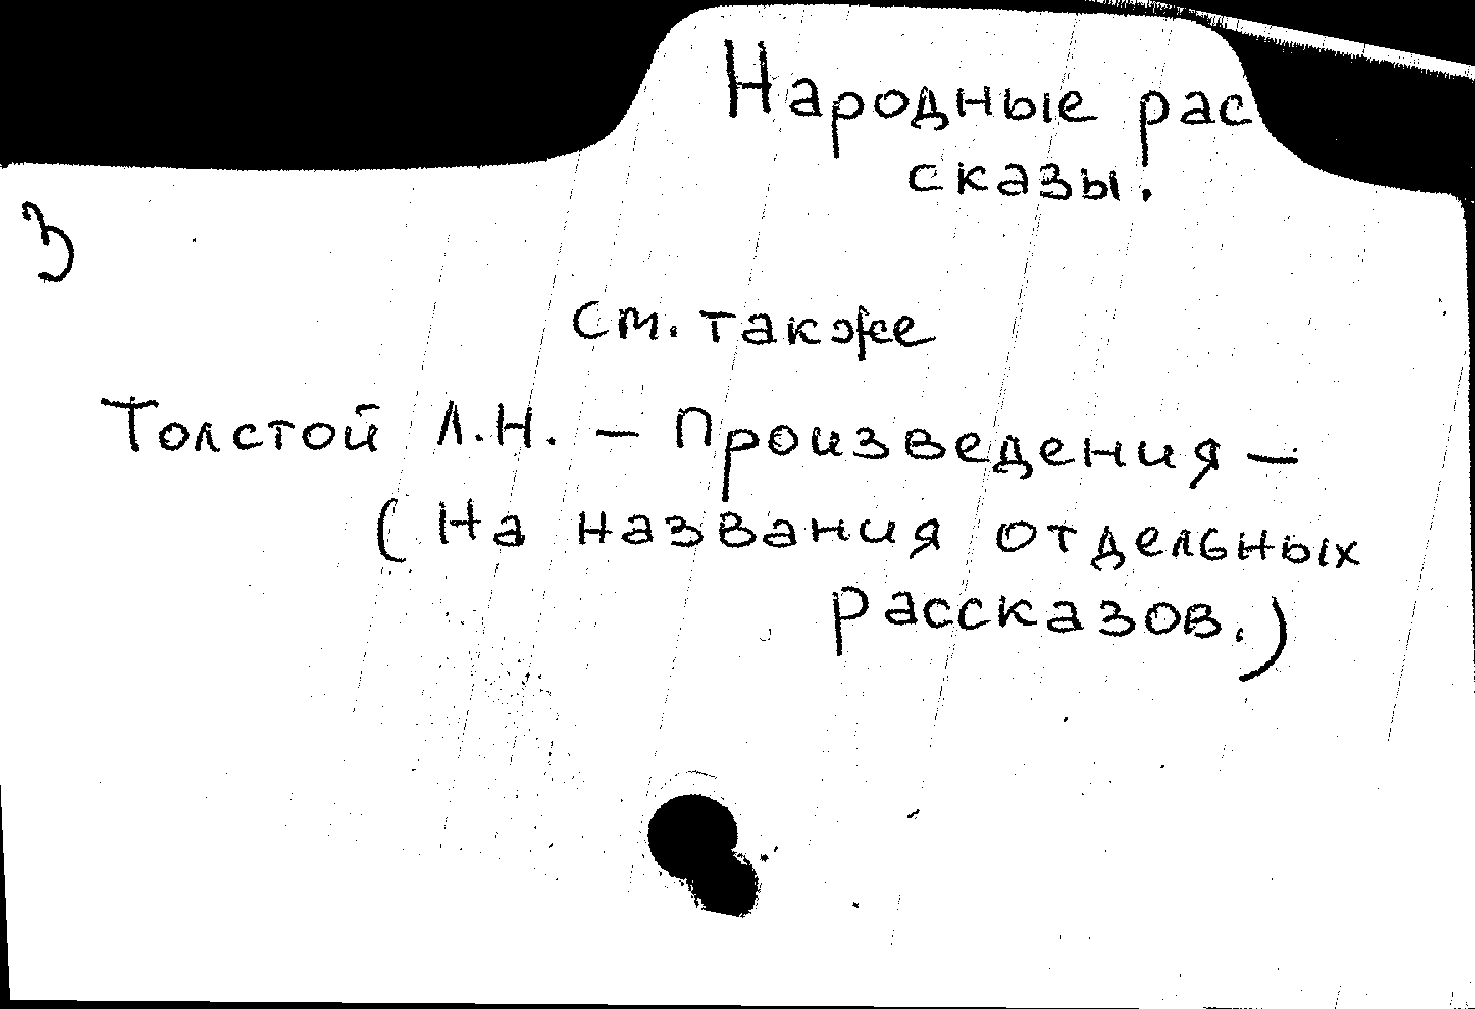 Народные рас
сказы.
см. также
Толстой Л.Н. – Произведения –
(На названия отдельных
рассказов.)